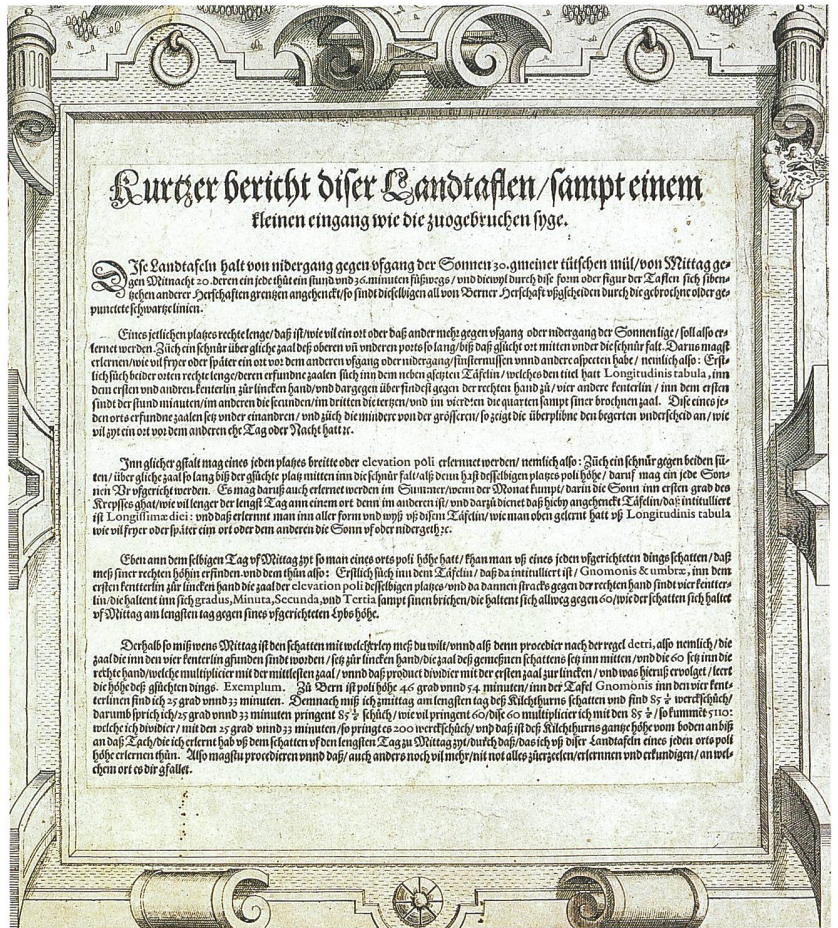 Kurtzer bericht diser Landtaflen/sampt einem
kleinen eingang wie die zuogebruchen syge.
DIse Landtafeln halt von nidergang gegen vfgang der Sonnen 30. gmeiner tütschen mül/von Mittag ge-
gen Mitnacht 20. deren ein jede thůt ein stund vnd 36. minuten fůßwegs/vnd diewyl durch dise form oder figur der Taflen sich siben-
tzehen anderer Herschaften grentzen angehenckt/so sindt dieselbigen all von Berner Herschaft vßgscheiden durch die gebrochne older ge-
punctete schwartze linien.
Eines jetlichen platzes rechte lenge/daß ist/wie vil ein ort oder daß ander mehr gegen vfgang oder nidergang der Sonnen lige/soll also er-
lernet werden. Züch ein schnůr über gliche zaal deß oberen vñ vnderen ports so lang/biß daß gsücht ort mitten vnder die schnůr falt. Darus magst
erlernen/wie vil fryer oder später ein ort vor dem anderen vfgang oder nidergang/finsternussen vnnd andere aspecten habe/nemlich also: Erst-
lich sůch beider orten rechte lenge/deren erfundne zaalen sůch inn dem neben gsetzten Täfelin/welches den titel hatt Longitudinis tabula, inn
dem ersten vnd andren kenterlin zur lincken hand/vnd dargegen über findest gegen der rechten hand zů/vier andere kenterlin/inn dem ersten
sindt der stund minuten/im anderen die secunden/im dritten die tertzen/vnd im vierdten die quarten sampt siner brochnen zaal. Dise eines je-
den orts erfundne zaalen setz vnder einandren/vnd züch die mindere von der grösseren/so zeigt die überplibne den begerten vnderscheid an/wie
vil zyt ein ort vor dem anderen ehe Tag oder Nacht hatt ꝛc.
Inn glicher gstalt mag eines jeden platzes breitte oder elevation poli erlernnet werden/nemlich also: Züch ein schnůr gegen beiden sü-
ten/über gliche zaal so lang biß der gsůchte platz mitten inn die schnůr falt/alß denn hast desselbigen platzes poli höhe/daruf mag ein jede Son-
nen Vr vfgericht werden. Es mag daruß auch erlernet werden im Summer/wenn der Monat kumpt/darin die Sonn inn ersten grad des
Krepsses ghat/wie vil lenger der lengst Tag ann einem ort denn im anderen ist/vnd darzů dienet daß hieby angehenckt Täfelin/daß intitulliert
ist Longissimæ dici: vnd daß erlernnt man inn aller form vnd wyß vß disem Täfelin/wie man oben gelernt hatt vß Longitudinis tabula
wie vil fryer oder später ein ort oder dem anderen die Sonn vf oder nidergeth ꝛc.
Eben ann dem selbigen Tag vf Mittag zyt so man eines orts poli höhe hatt/khan man vß eines jeden vfgerichteten dings schatten/daß
meß siner rechten höhin erfinden. vnd dem thůn also: Erstlich sůch inn dem Täfelin/daß da intitulliert ist/Gnomonis & umbræ, inn dem
ersten kentterlin zür lincken hand die zaal der elevation poli desselbigen platzes/vnd da dannen stracks gegen der rechten hand sindt vier kentter-
lin/die haltent inn sich gradus, Minuta, Secunda, vnd Tertia sampt sinen brichen/die haltent sich allweg gegen 60/wie der schatten sich haltet
vf Mittag am lengsten tag gegen sines vfgerichteten Lybs höhe.
Derhalb so miß wens Mittag ist den schatten mit welcherley meß du wilt/vnnd alß denn procedier nach der regel detri, also nemlich/die
zaal die inn den vier kenterlin gfunden sindt worden/setz zür lincken hand/die zaal deß gemeßnen schattens setz inn mitten/vnd die 60 setz inn die
rechte hand/welche multiplicier mit der mittlesten zaal/vnnd daß product dividier mit der ersten zaal zur lincken/vnd was hieruß ervolget/leert
die höhe deß gsüchten dings. Exemplum. Zů Bern ist poli höhe 46 grad vnnd 54 minuten/inn der Tafel Gnomonis inn den vier kent-
terlinen find ich 25 grad vnnd 33 minuten. Demnach miß ich zmittag am lengsten tag deß Kilchthurns schatten vnd find 85 ½ werckschůch/
darumb sprich ich/25 grad vnnd 33 minuten pringent 85 ½ schůch/wie vil pringent 60/dise 60 multiplicier ich mit den 85 ½/so kummēt 5110:
welche ich dividier/mit den 25 grad vnnd 33 minuten/so pringt es 200 werckschůch/vnd daß ist deß Kilchthurns gantze höhe vom boden an biß
an daß Tach/die ich erlernt hab vß dem schatten vf den lengsten Tag zu Mittag zyt/durch daß/das ich vß diser Landtafelen eines jeden orts poli
höhe erlernen thůn. Also magstu procedieren vnnd daß/auch anders noch vil mehr/nit not alles zůerzeelen/erlernnen vnd erkundigen/an wel-
chem ort es dir gfallet.